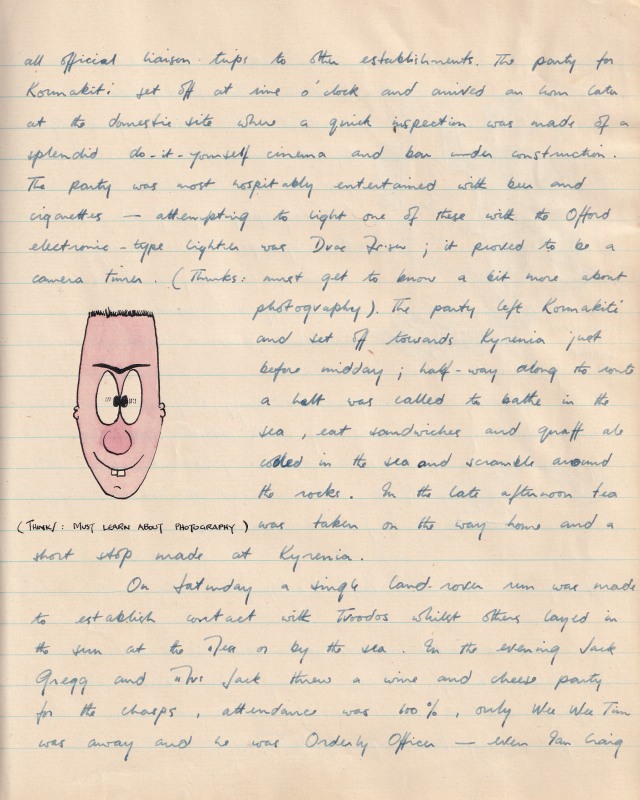 all official liaison trips to other establishments. The party for
Kormakiti set off at nine o'clock and arrived an hour later
at the domestic site where a quick inspection was made of a
splendid do-it-yourself cinema and bar under construction.
The party was most hospitably entertained with beer and
cigarettes — attempting to light one of these with the Offord
electronic-type lighter was Dvae ; it proved to be a
camera timer. (Thinks: must get to know a bit more about
photography). The party left Kormakiti
and set off towards Kyrenia just
before midday; half-way along the route
a halt was called to bathe in the
sea, eat sandwiches and quaff ale
cooled in the sea and scramble around
the rocks. In the late afternoon tea
(THINKS: MUST LEARN ABOUT PHOTOGRAPHY) was taken on the way home and a
short stop made at Kyrenia.
On Saturday a single land-rover run was made
to establish contact with Troodos whilst others layed in
the sun at the Mess or by the sea. In the evening Jack
Gregg and Mrs Jack threw a wine and cheese party
for the chaps, attendance was 100%, only Wee Wee Tim
was away and he was Orderly Officer — even Ian Craig